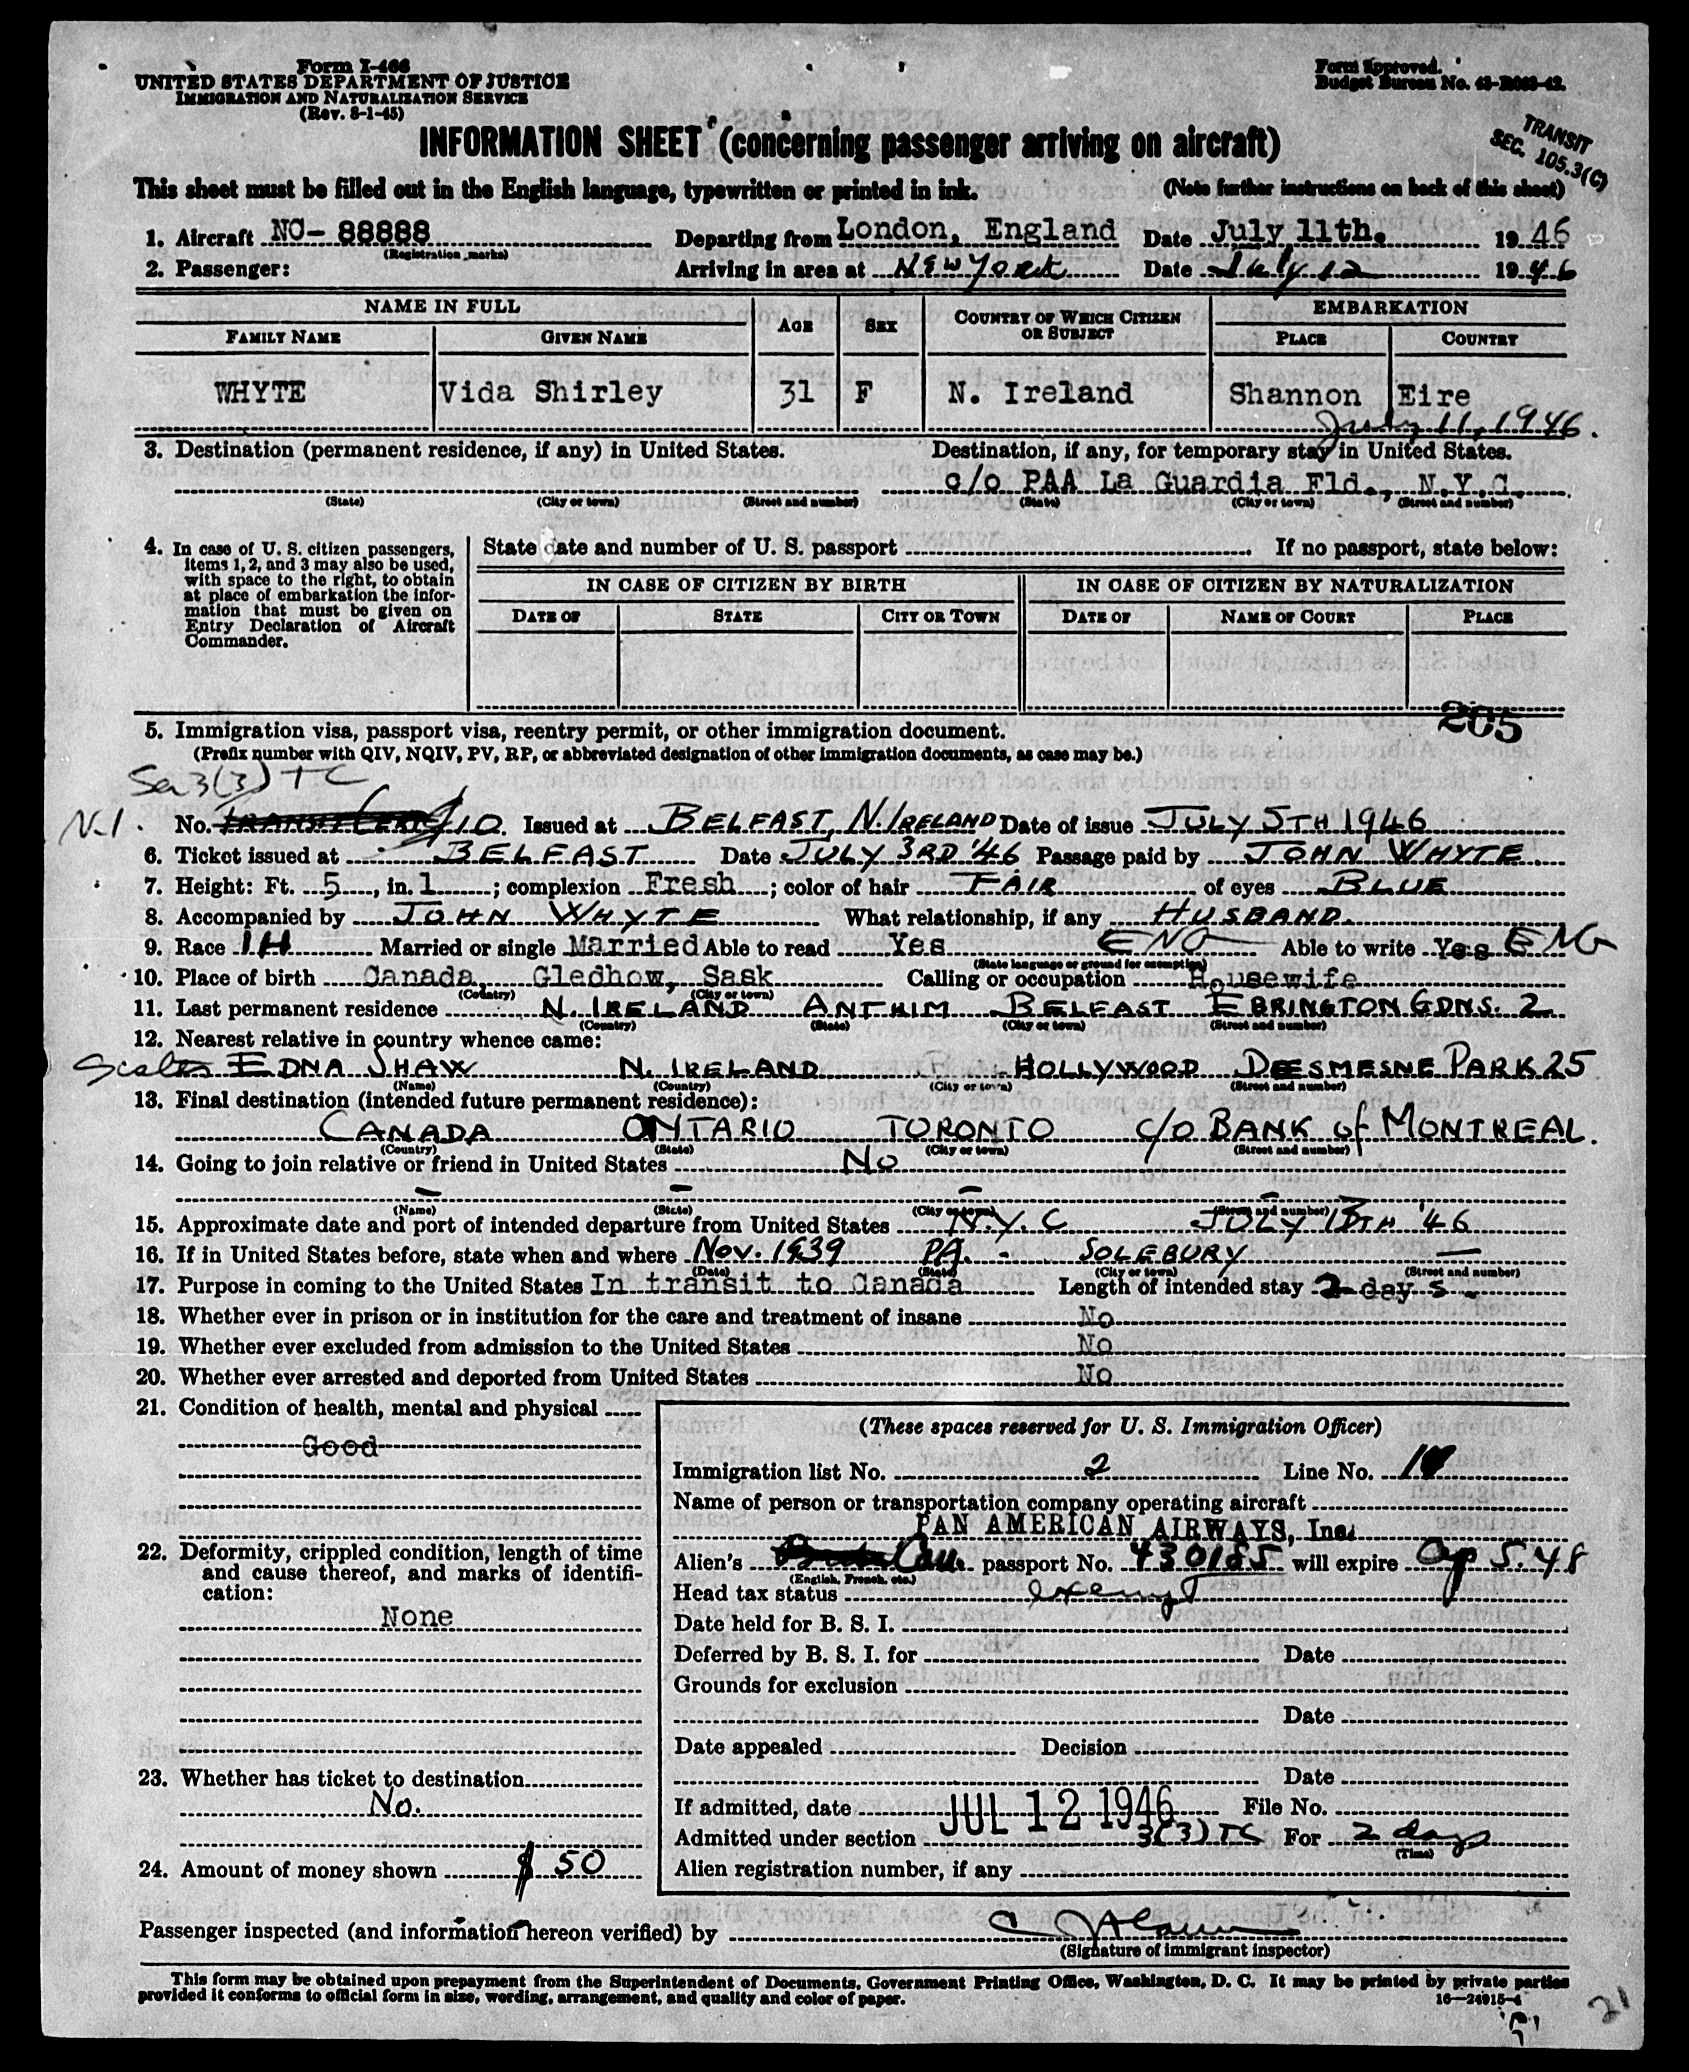 Form I-466
UNITED STATES DEPARTMENT OF JUSTICE
IMMIGRATION AND NATURALIZATION SERVICE
(Rev. 8-1-45)
Form approved.
Budget Bureau No.
TRANSIT
SEC. 105.3(C)
INFORMATION SHEET (concerning passenger arriving on aircraft)
This sheet must be filled out in the English language, typewritten or printed in ink. (Note further instructions on back of this sheet)
1. Aircraft NC-88888 Departing from London, England Date July 11th. 1946
(Registration marks)
2. Passenger: Arriving in area at New York Date July 12 1946
NAME IN FULL AGE SEX COUNTRY OF WHICH CITIZEN OR SUBJECT EMBARKATION
FAMILY NAME GIVEN NAME PLACE COUNTRY
WHYTE Vida Shirley 31 F N. Ireland Shannon Eire
July 11, 1946.
3. Destination (permanent residence, if any) in United States. Destination, if any, for temporary stay in United States.
c/o PAA La Guardia Fld., N.Y.C.
(State) (City or town) (Street and number) (State) (City or town) (Street and number)
4. In case of U. S. citizen passengers, items 1, 2, and 3 may also be used, with space to the right, to obtain at place of embarkation the information that must be given on Entry Declaration of Aircraft Commander.
State date and number of U. S. passport If no passport, state below:
IN CASE OF CITIZEN BY BIRTH IN CASE OF CITIZEN BY NATURALIZATION
DATE OF STATE CITY OR TOWN DATE OF NAME OF COURT PLACE
265
5. Immigration visa, passport visa, reentry permit, or other immigration document.
(Prefix number with QIV, NQIV, PV, RP, or abbreviated designation of other immigration documents, as case may be.)
Sec 3(3) TC
N.I. No. 10. Issued at BELFAST, N. IRELAND Date of issue JULY 5TH 1946
6. Ticket issued at BELFAST Date JULY 3RD '46 Passage paid by JOHN WHYTE
7. Height: Ft. 5, in. 1; complexion Fresh; color of hair FAIR of eyes BLUE
8. Accompanied by JOHN WHYTE What relationship, if any HUSBAND.
9. Race IH Married or single Married Able to read Yes ENG Able to write Yes ENG
(State language or ground for exemption)
10. Place of birth Canada, Gledhow, Sask Calling or occupation Housewife
(Country) (City or town)
11. Last permanent residence N. IRELAND ANTHIM BELFAST EBRINGTON GDNS. 2
(Country) (State) (City or town) (Street and number)
12. Nearest relative in country whence came:
EDNA SHAW N. IRELAND HOLLYWOOD DEESMESNE PARK 25
(Name) (Country) (City or town) (Street and number)
13. Final destination (intended future permanent residence):
CANADA ONTARIO TORONTO C/O BANK of MONTREAL.
(Country) (State) (City or town) (Street and number)
14. Going to join relative or friend in United States No
– – – –
(Name) (State) (City or town) (Street and number)
15. Approximate date and port of intended departure from United States N.Y.C JULY 13TH '46
16. If in United States before, state when and where Nov. 1939 PA. - SOLEBURY —
(Date) (State) (City or town) (Street and number)
17. Purpose in coming to the United States In transit to Canada Length of intended stay 2 days
18. Whether ever in prison or in institution for the care and treatment of insane No
19. Whether ever excluded from admission to the United States No
20. Whether ever arrested and deported from United States No
21. Condition of health, mental and physical
Good
22. Deformity, crippled condition, length of time and cause thereof, and marks of identification:
None
23. Whether has ticket to destination
No.
24. Amount of money shown $ 50
(These spaces reserved for U. S. Immigration Officer)
Immigration list No. 2 Line No.
Name of person or transportation company operating aircraft
PAN AMERICAN AIRWAYS, Inc.
Alien's Can. passport No. 430185 will expire Ap 5.48
(English, French, etc.)
Head tax status exempt
Date held for B. S. I.
Deferred by B. S. I. for Date
Grounds for exclusion
Date
Date appealed Decision
Date
If admitted, date JUL 12 1946 File No.
Admitted under section 3(3) TC For 2 days
(Time)
Alien registration number, if any
Passenger inspected (and information hereon verified) by
(Signature of immigrant inspector)
This form may be obtained upon prepayment from the Superintendent of Documents, Government Printing Office, Washington, D. C. It may be printed by private parties
provided it conforms to official form in size, wording, arrangement, and quality and color of paper.
16—24915-4
21